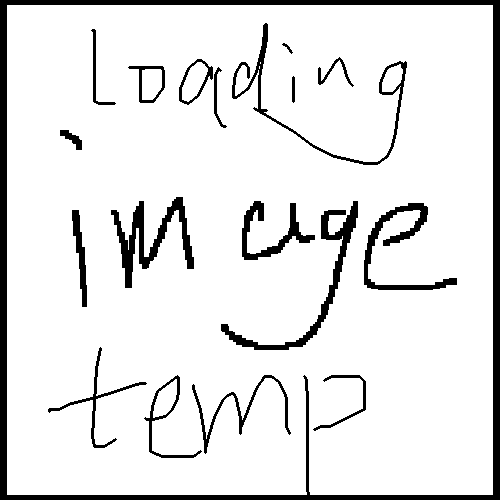 Loading
image
temp